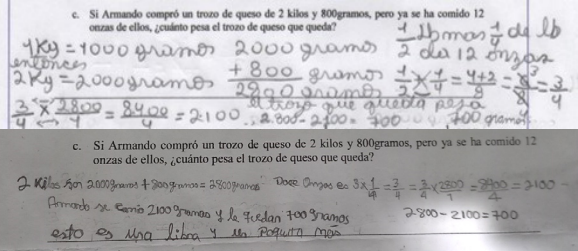 c. Si Armando compró un trozo de queso de 2 kilos y 800gramos, pero ya se ha comido 12
onzas de ellos, ¿cuánto pesa el trozo de queso que queda?
1/2 lb mas 1/4 de lb
da 12 onzas
1Kg = 1000 gramos
entonces
2Kg = 2000 gramos
2000 gramos
+ 800 gramos
2800 gramos
1/2 x 1/4 = 4+2/8 = 6/8 = 3/4
3/4 x 2800 = 8400/4 = 2100
el trozo que queda pesa
2.800 - 2100 = 700
700 gramos
c. Si Armando compró un trozo de queso de 2 kilos y 800gramos, pero ya se ha comido 12
onzas de ellos, ¿cuánto pesa el trozo de queso que queda?
2 Kilos son 2000gramos + 800 gramos = 2800gramos Doce Onzas es 3x1/4 = 3/4 = 3/4 x 2800/1 = 8400/4 = 2100
Armando se comio 2100 gramos y le quedan 700 gramos 2.800 - 2100 = 700
esto es una libra y un poquito mas